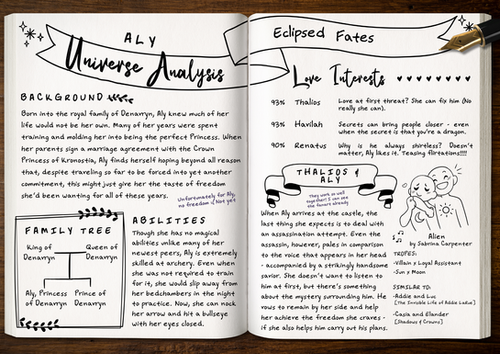 ALY
Universe Analysis
BACKGROUND
Born into the royal family of Denarryn, Aly knew much of her
life would not be her own. Many of her years were spent
training and molding her into being the perfect Princess. When
her parents sign a marriage agreement with the Crown
Princess of Kronostia, Aly finds herself hoping beyond all reason
that, despite traveling so far to be forced into yet another
commitment, this might just give her the taste of freedom
she'd been wanting for all of these years.
Unfortunately for Aly,
no freedom :( Not yet
FAMILY TREE
King of
Denarryn
Queen of
Denarryn
Aly, Princess
of Denarryn
Prince of
Denarryn
ABILITIES
Though she has no magical
abilities unlike many of her
newest peers, Aly is extremely
skilled at archery. Even when
she was not required to train
for it, she would slip away from
her bedchambers in the night
to practice. Now, she can nock
her arrow and hit a bullseye
with her eyes closed.
Eclipsed Fates
Love Interests
93% Thalios Love at first threat? She can fix him (No
really she can).
93% Havilah Secrets can bring people closer - even
when the secret is that you're a dragon.
90% Renatus Why is he always shirtless? Doesn't
matter, Aly likes it. Teasing flirtations!!!!
THALIOS &
ALY
They work so well
together! I can see
the
already
When Aly arrives at the castle, the
last thing she expects is to deal with
an assassination attempt. Even the
assassin, however, pales in comparison
to the voice that appears in her head
- accompanied by a strikingly handsome
savior. She doesn't want to listen to
him at first, but there's something
about the mystery surrounding him. He
vows to remain by her side and help
her achieve the freedom she craves -
if she also helps him carry out his plans.
Alien
by Sabrina Carpenter
TROPES:
-Villain x Loyal Assistant
-Sun x Moon
SIMILAR TO:
-Addie and Luc
[The Invisible Life of Addie LaRue]
-Casia and Elander
[Shadows & Crowns]